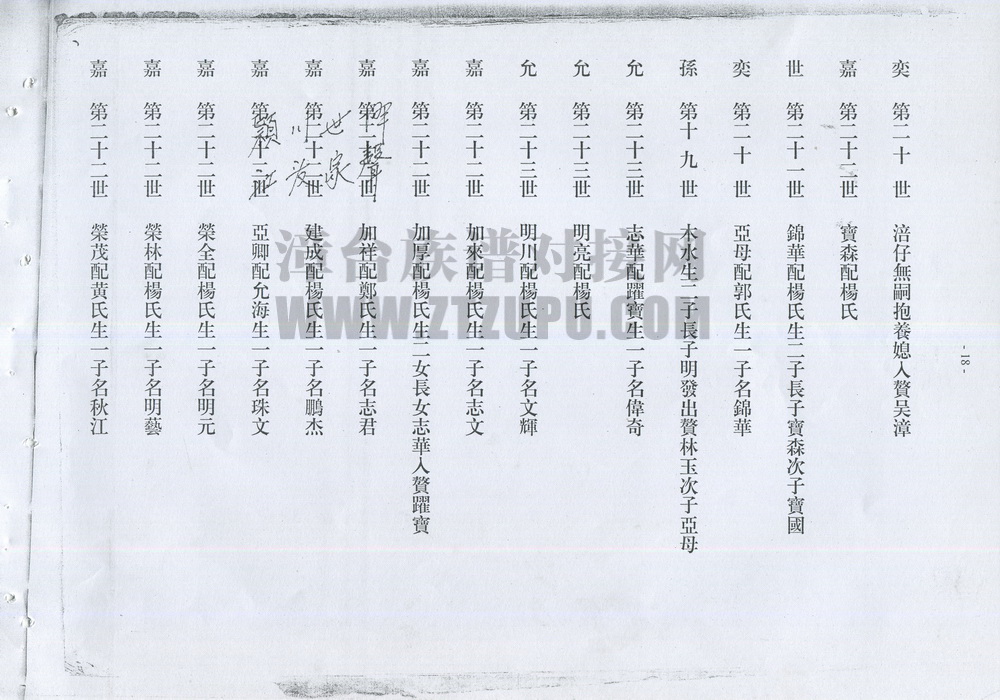 奕 第二十世 涪仔無嗣抱養媳入贅吴漳
嘉 第二十二世 寶森配楊氏
世 第二十一世 錦華配楊氏生二子長子寶森次子寶國
奕 第二十世 亞母配郭氏生一子名錦華
孫 第十九世 木水生二子長子明發出贅林玉次子亞母
允 第二十三世 志華配躍寶生一子名偉奇
允 第二十三世 明亮配楊氏
允 第二十三世 明川配楊氏生一子名文輝
嘉 第二十二世 加來配楊氏生一子名志文
嘉 第二十二世 加厚配楊氏生二女長女志華入贅躍寶
嘉 第二十二世 加祥配鄭氏生一子名志君
嘉 第二十二世 建成配楊氏生一子名鵬杰
嘉 第二十二世 亞卿配允海生一子名珠文
嘉 第二十二世 榮全配楊氏生一子名明元
嘉 第二十二世 榮林配楊氏生一子名明藝
嘉 第二十二世 榮茂配黃氏生一子名秋江
聲
世家
川
潁
- 18 -
漳台族谱对接网
WWW.ZTZUPU.COM